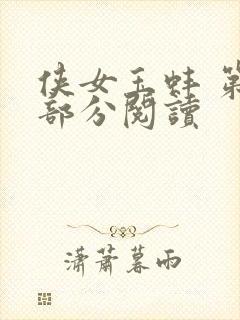 侠女玉蚌 第
部分阅读
潇萧暮雨